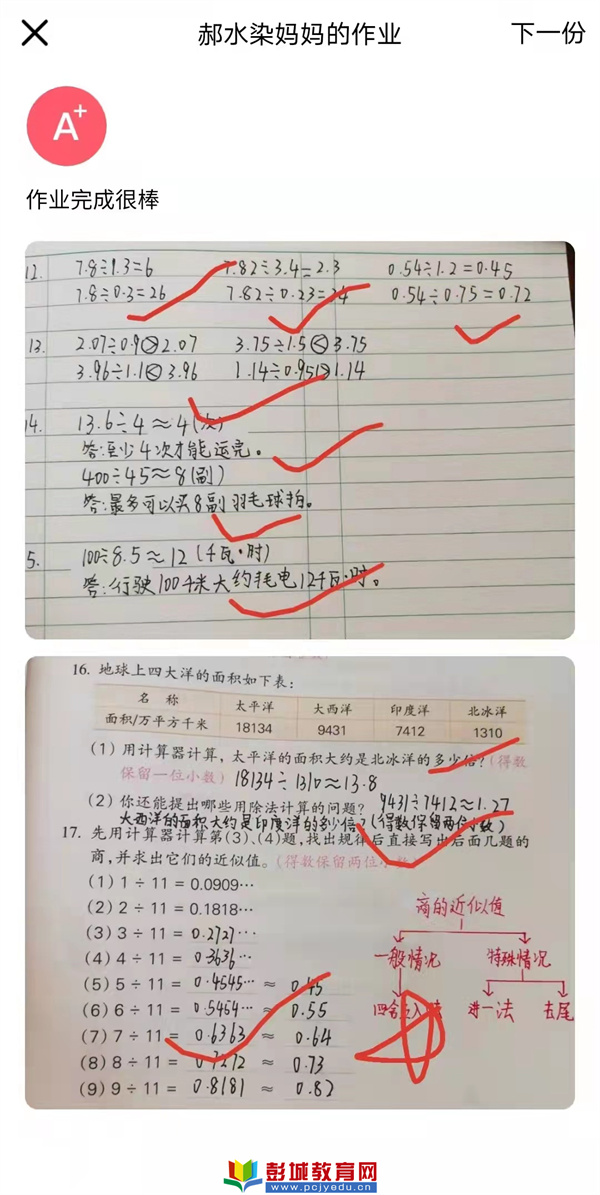 郝水染妈妈的作业
下一份
A+
作业完成很棒
12. 7.8÷1.3=6 7.82÷3.4=2.3 0.54÷1.2=0.45
7.8÷0.3=26 7.82÷0.23=34 0.54÷0.75=0.72
13. 2.07÷0.9>2.07 3.75÷1.5<3.75
3.96÷1.1<3.96 1.14÷0.95>1.14
14. 13.6÷4≈4(次)
答:至少4次才能运完。
400÷45≈8(副)
答:最多可以买8副羽毛球拍。
5. 100÷8.5≈12(千瓦·时)
答:行驶100千米大约耗电12千瓦·时。
16. 地球上四大洋的面积如下表:
名 称 太平洋 大西洋 印度洋 北冰洋
面积/万平方千米 18134 9431 7412 1310
(1) 用计算器计算,太平洋的面积大约是北冰洋的多少倍?(得数
保留一位小数) 18134÷1310≈13.8
(2) 你还能提出哪些用除法计算的问题? 9431÷7412≈1.27
大西洋的面积大约是印度洋的多少倍?(得数保留两位小数)
17. 先用计算器计算第(3)、(4)题,找出规律后直接写出后面几题的
商,并求出它们的近似值。(得数保留两位小数)
(1) 1 ÷ 11 = 0.0909…
(2) 2 ÷ 11 = 0.1818…
(3) 3 ÷ 11 = 0.2727…
(4) 4 ÷ 11 = 0.3636…
(5) 5 ÷ 11 = 0.4545… ≈ 0.45
(6) 6 ÷ 11 = 0.5454… ≈ 0.55
(7) 7 ÷ 11 = 0.6363 ≈ 0.64
(8) 8 ÷ 11 = 0.7272 ≈ 0.73
(9) 9 ÷ 11 = 0.8181 ≈ 0.82
商的近似值
一般情况 特殊情况
四舍五入法 进一法 去尾
彭城教育网
www.pcjyedu.cn